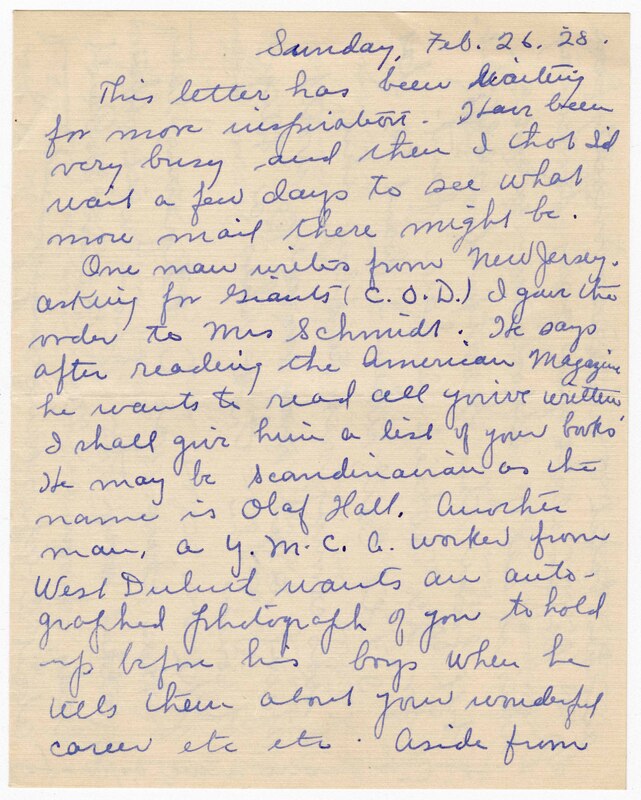 Sunday, Feb. 26. 28.
This letter has been waiting
for more inspiration. Have been
very busy and then I thot I'd
wait a few days to see what
more mail there might be.
One man writes from New Jersey.
asking for Giants (C.O.D.) I gave the
order to Mrs Schmidt. He says
after reading the American Magazine
he wants to read all you've written
I shall give him a list of your books
He may be Scandinavian as the
name is Olaf Hall. Another
man, a Y.M.C.A. worker from
West Duluth wants an auto-
graphed photograph of you to hold
up before his boys when he
tells them about your wonderful
career etc etc. Aside from